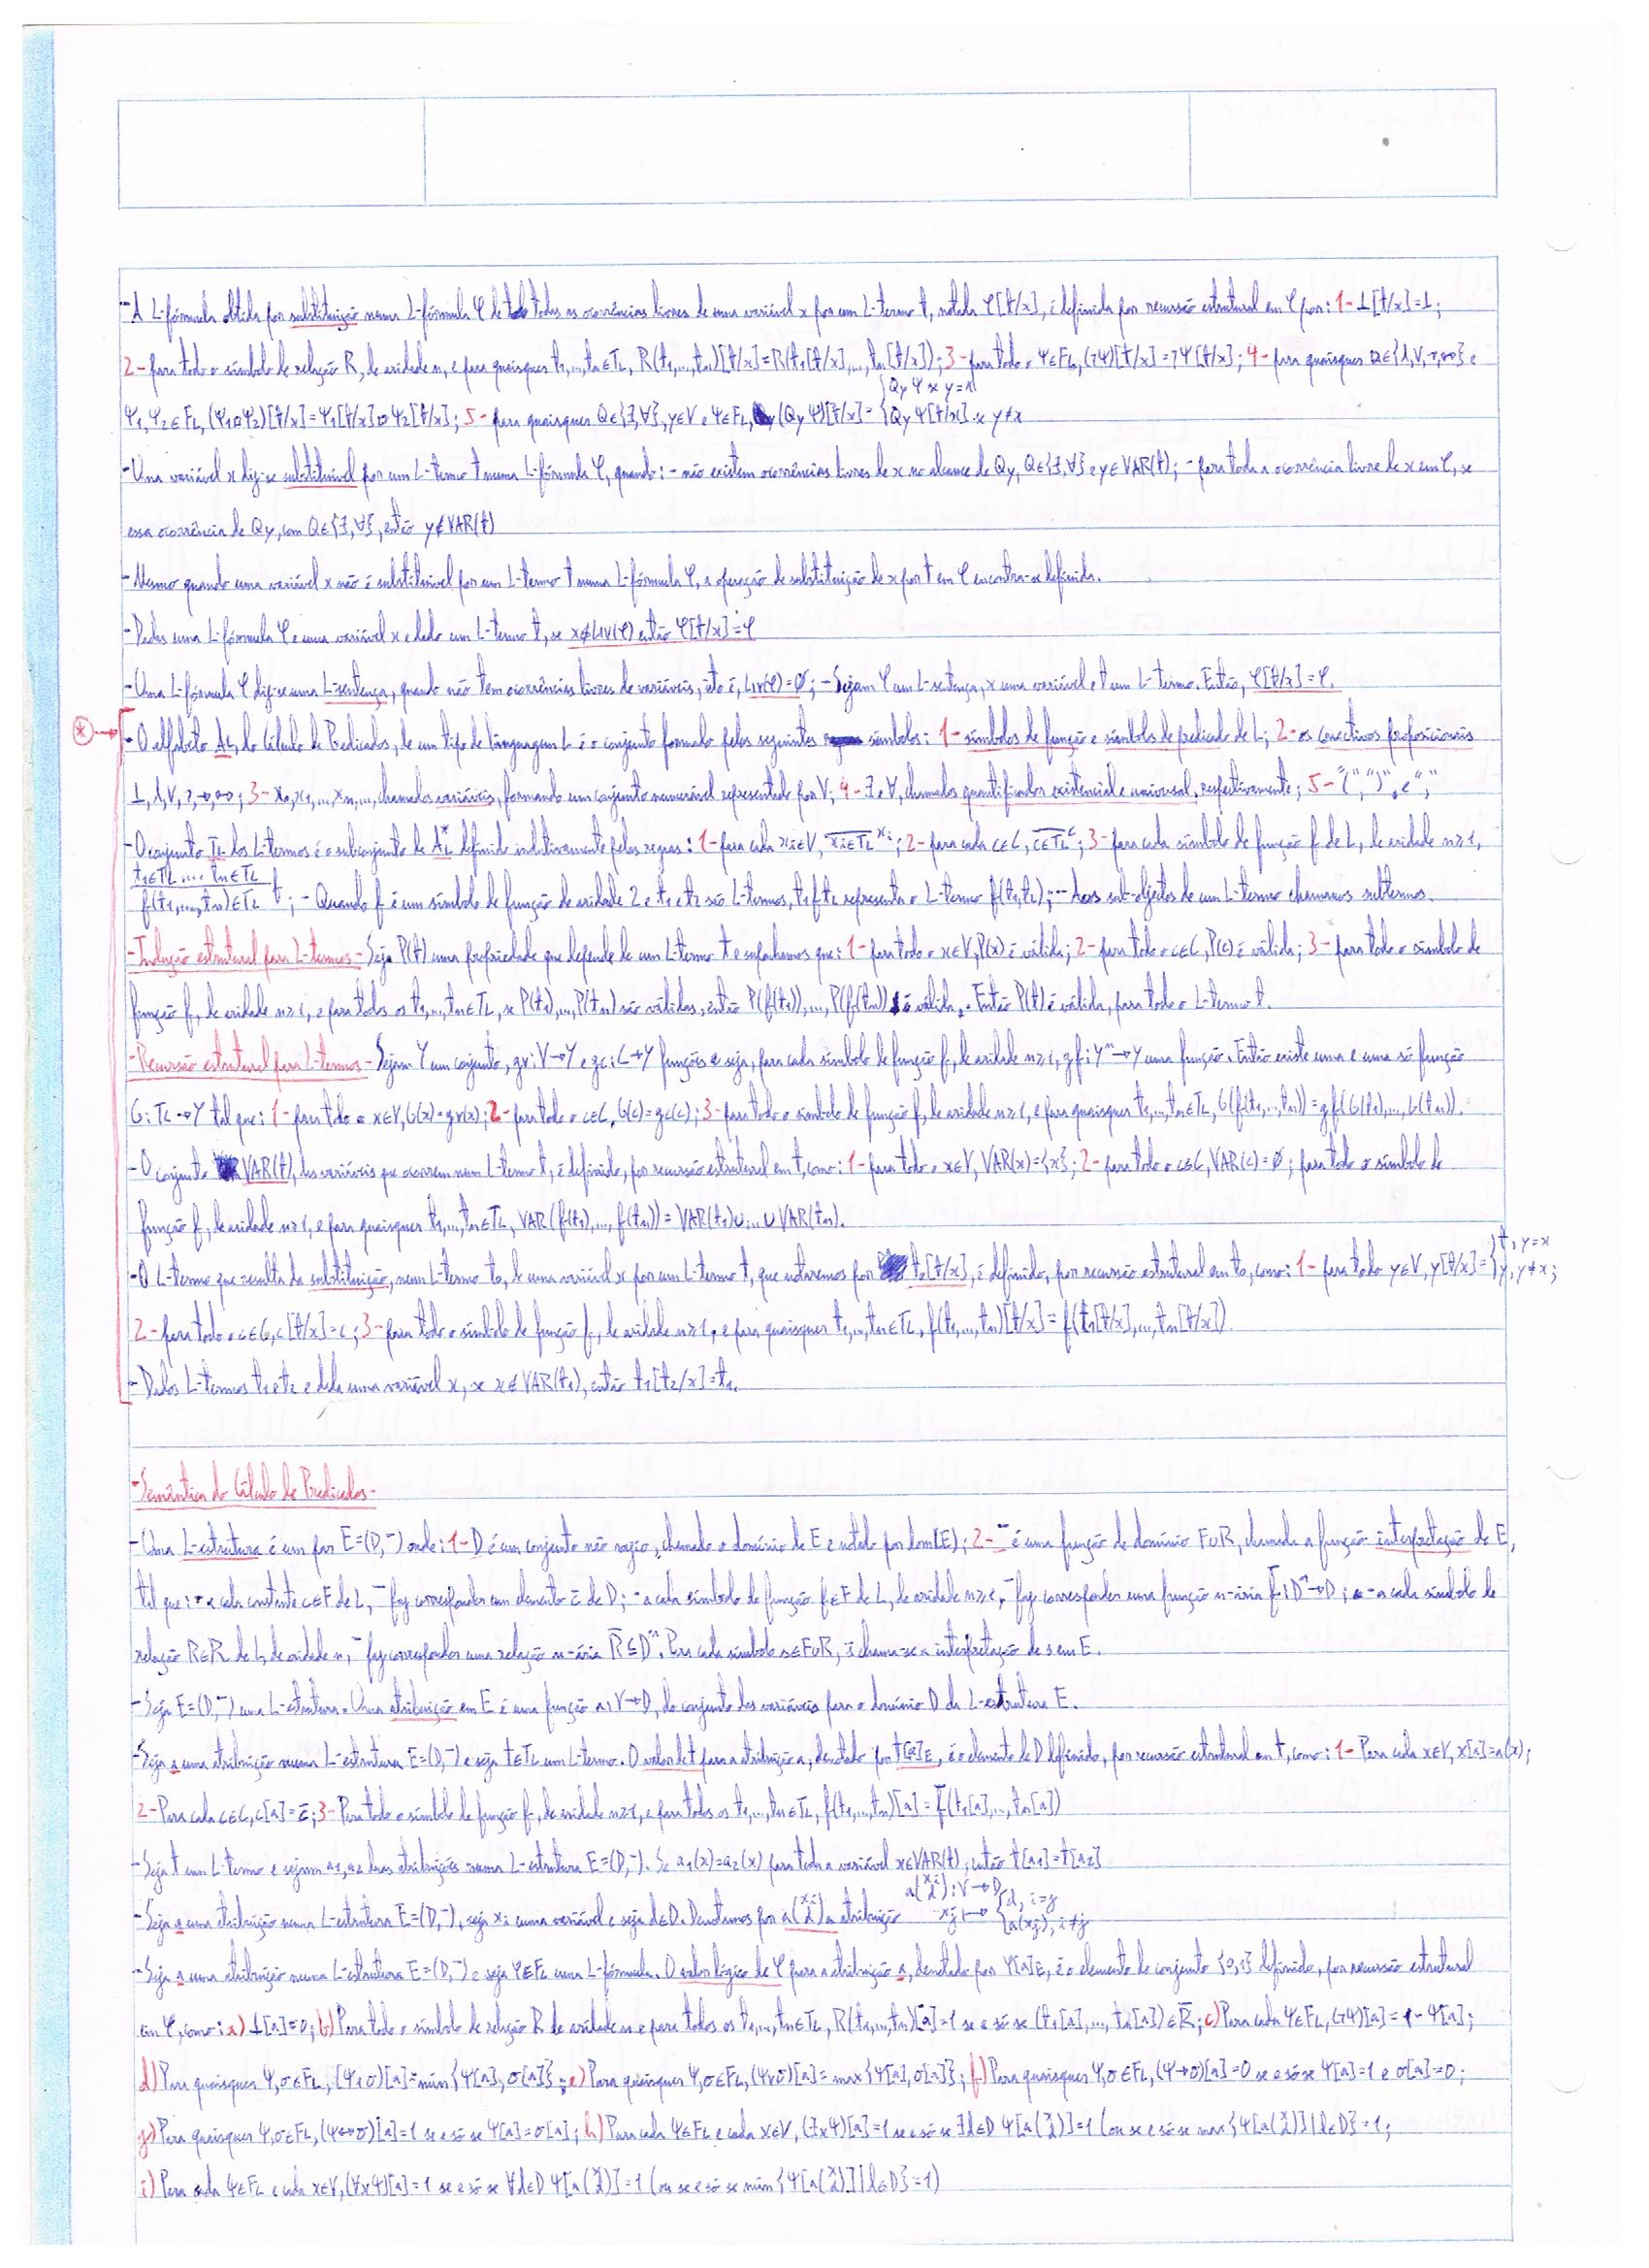 - A L-fórmula obtida por substituição numa L-fórmula φ de todas as ocorrências livres de uma variável x por um L-termo t, notada φ[t/x], é definida por recursão estrutural em φ por: 1- ⊥[t/x]=⊥;
2- para todo o símbolo de relação R, de aridade n, e para quaisquer t1,...,tn∈TL, R(t1,...,tn)[t/x]=R(t1[t/x],...,tn[t/x]); 3- para todo o ψ∈FL, (¬ψ)[t/x]=¬ψ[t/x]; 4- para quaisquer □∈{∧,∨,→,↔} e
ψ1,ψ2∈FL, (ψ1□ψ2)[t/x]=ψ1[t/x]□ψ2[t/x]; 5- para quaisquer Q∈{∃,∀}, y∈V e ψ∈FL, (Qyψ)[t/x]= {Qyψ se y=x {Qyψ[t/x] se y≠x
- Uma variável x diz-se substituível por um L-termo t numa L-fórmula φ, quando: - não existem ocorrências livres de x no alcance de Qy, Q∈{∃,∀} e y∈VAR(t); - para toda a ocorrência livre de x em φ, se
essa ocorrência de Qy, com Q∈{∃,∀}, então y∉VAR(t)
- Mesmo quando uma variável x não é substituível por um L-termo t numa L-fórmula φ, a operação de substituição de x por t em φ encontra-se definida.
- Dadas uma L-fórmula φ e uma variável x e dado um L-termo t, se x∉LIV(φ) então φ[t/x]=φ
- Uma L-fórmula φ diz-se uma L-sentença, quando não tem ocorrências livres de variáveis, isto é, LIV(φ)=∅; - Sejam φ um L-sentença, x uma variável e t um L-termo. Então, φ[t/x]=φ.
(*)→ - O alfabeto AL, do Cálculo de Predicados, de um tipo de linguagem L é o conjunto formado pelos seguintes símbolos: 1- símbolos de função e símbolos de predicado de L; 2- os conectivos proposicionais
⊥,∧,∨,¬,→,↔; 3- x0,x1,...,xn,..., chamados variáveis, formando um conjunto numerável representado por V; 4- ∃ e ∀, chamados quantificador existencial e universal, respetivamente; 5- "(", ")", e ","
- O conjunto TL dos L-termos é o subconjunto de AL* definido indutivamente pelas regras: 1- para cada xi∈V, xi∈TL xi; 2- para cada c∈C, c∈TL c; 3- para cada símbolo de função f de L, de aridade n≥1,
t1∈TL ... tn∈TL
f(t1,...,tn)∈TL f; - Quando f é um símbolo de função de aridade 2 e t1 e t2 são L-termos, t1ft2 representa o L-termo f(t1,t2); - Aos sub-objectos de um L-termo chamamos subtermos.
- Indução estrutural para L-termos - Seja P(t) uma propriedade que depende de um L-termo t e suponhamos que: 1- para todo o x∈V, P(x) é válida; 2- para todo o c∈C, P(c) é válida; 3- para todo o símbolo de
função f, de aridade n≥1, e para todos os t1,...,tn∈TL, se P(t1),...,P(tn) são válidas, então P(f(t1)),...,P(f(tn)) é válida. Então P(t) é válida, para todo o L-termo t.
- Recursão estrutural para L-termos - Sejam Y um conjunto, gv:V→Y e gc:C→Y funções e seja, para cada símbolo de função f, de aridade n≥1, gf:Yⁿ→Y uma função. Então existe uma e uma só função
G:TL→Y tal que: 1- para todo o x∈V, G(x)=gv(x); 2- para todo o c∈C, G(c)=gc(c); 3- para todo o símbolo de função f, de aridade n≥1, e para quaisquer t1,...,tn∈TL, G(f(t1,...,tn))=gf(G(t1),...,G(tn)).
- O conjunto VAR(t), das variáveis que ocorrem num L-termo t, é definido, por recursão estrutural em t, como: 1- para todo o x∈V, VAR(x)={x}; 2- para todo o c∈C, VAR(c)=∅; para todo o símbolo de
função f, de aridade n≥1, e para quaisquer t1,...,tn∈TL, VAR(f(t1),...,f(tn))=VAR(t1)∪...∪VAR(tn).
- O L-termo que resulta da substituição, num L-termo t0, de uma variável x por um L-termo t, que notaremos por t0[t/x], é definido, por recursão estrutural em t0, como: 1- para todo y∈V, y[t/x]={t, y=x {y, y≠x;
2- para todo o c∈C, c[t/x]=c; 3- para todo o símbolo de função f, de aridade n≥1, e para quaisquer t1,...,tn∈TL, f(t1,...,tn)[t/x]=f(t1[t/x],...,tn[t/x])
- Dados L-termos t1 e t2 e dada uma variável x, se x∉VAR(t1), então t1[t2/x]=t1.
- Semântica do Cálculo de Predicados -
- Uma L-estrutura é um par E=(D,‾) onde: 1- D é um conjunto não vazio, chamado o domínio de E e notado por dom(E); 2- ‾ é uma função de domínio F∪R, chamada a função interpretação de E,
tal que: - a cada constante c∈F de L, ‾ faz corresponder um elemento c̄ de D; - a cada símbolo de função f∈F de L, de aridade n≥1, ‾ faz corresponder uma função n-ária f̄:Dⁿ→D; - a cada símbolo de
relação R∈R de L, de aridade n, ‾ faz corresponder uma relação n-ária R̄⊆Dⁿ. Para cada símbolo s∈F∪R, s̄ chama-se a interpretação de s em E.
- Seja E=(D,‾) uma L-estrutura. Uma atribuição em E é uma função a:V→D, do conjunto das variáveis para o domínio D da L-estrutura E.
- Seja a uma atribuição numa L-estrutura E=(D,‾) e seja t∈TL um L-termo. O valor de t para a atribuição a, denotado por t[a]E, é o elemento de D definido, por recursão estrutural em t, como: 1- Para cada x∈V, x[a]=a(x);
2- Para cada c∈C, c[a]=c̄; 3- Para todo o símbolo de função f, de aridade n≥1, e para todos os t1,...,tn∈TL, f(t1,...,tn)[a]=f̄(t1[a],...,tn[a])
- Seja t um L-termo e sejam a1,a2 duas atribuições numa L-estrutura E=(D,‾). Se a1(x)=a2(x) para toda a variável x∈VAR(t), então t[a1]=t[a2]
- Seja a uma atribuição numa L-estrutura E=(D,‾), seja xi uma variável e seja d∈D. Denotamos por a(xi d) a atribuição a(xi d):V→D xj↦{d, i=j {a(xj), i≠j
- Seja a uma atribuição numa L-estrutura E=(D,‾) e seja φ∈FL uma L-fórmula. O valor lógico de φ para a atribuição a, denotado por φ[a]E, é o elemento do conjunto {0,1} definido, por recursão estrutural
em φ, como: a) ⊥[a]=0; b) Para todo o símbolo de relação R de aridade n e para todos os t1,...,tn∈TL, R(t1,...,tn)[a]=1 se e só se (t1[a],...,tn[a])∈R̄; c) Para cada ψ∈FL, (¬ψ)[a]=1-ψ[a];
d) Para quaisquer ψ,σ∈FL, (ψ∧σ)[a]=min{ψ[a],σ[a]}; e) Para quaisquer ψ,σ∈FL, (ψ∨σ)[a]=max{ψ[a],σ[a]}; f) Para quaisquer ψ,σ∈FL, (ψ→σ)[a]=0 se e só se ψ[a]=1 e σ[a]=0;
g) Para quaisquer ψ,σ∈FL, (ψ↔σ)[a]=1 se e só se ψ[a]=σ[a]; h) Para cada ψ∈FL e cada x∈V, (∃xψ)[a]=1 se e só se ∃d∈D ψ[a(x d)]=1 (ou se e só se max{ψ[a(x d)]|d∈D}=1;
i) Para cada ψ∈FL e cada x∈V, (∀xψ)[a]=1 se e só se ∀d∈D ψ[a(x d)]=1 (ou se e só se min{ψ[a(x d)]|d∈D}=1)